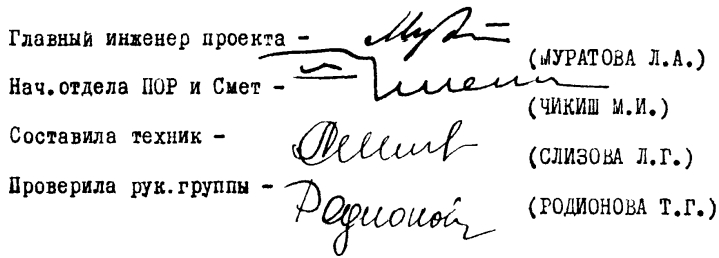 Главный инженер проекта - (МУРАТОВА Л.А.)
Нач.отдела ПОР и Смет - (ЧИКИШ М.И.)
Составила техник - (СЛИЗОВА Л.Г.)
Проверила рук.группы - Родионова (РОДИОНОВА Т.Г.)